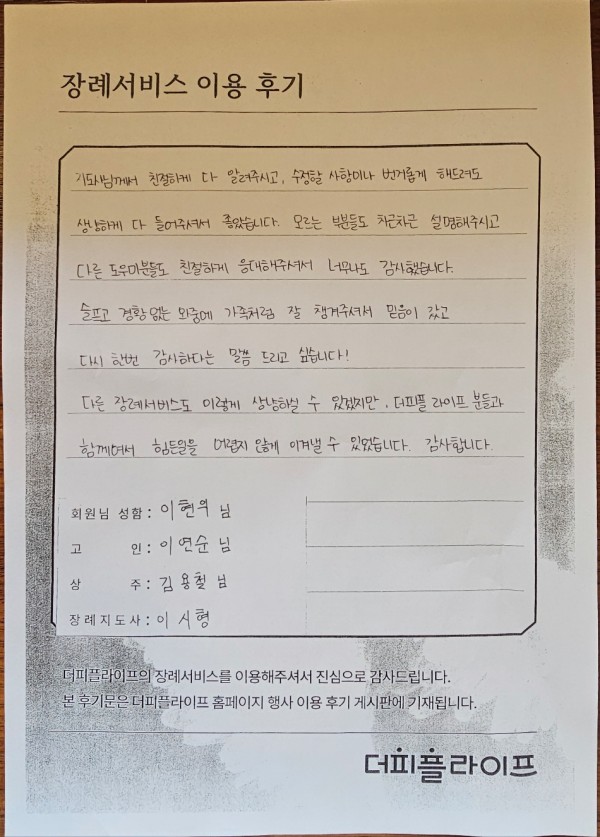 장례서비스 이용 후기
지도사님께서 친절하게 다 알려주시고, 수정할 사항이나 번거롭게 해드려도
상냥하게 다 들어주셔서 좋았습니다. 모르는 부분들도 차근차근 설명해주시고
다른 도우미분들도 친절하게 응대해주셔서 너무나도 감사했습니다.
슬프고 경황 없는 와중에 가족처럼 잘 챙겨주셔서 믿음이 갔고
다시 한번 감사하다는 말씀 드리고 싶습니다!
다른 장례서비스도 이렇게 상냥하실 수 있겠지만, 더피플 라이프 분들과
함께여서 힘든일을 어렵지 않게 이겨낼 수 있었습니다. 감사합니다.
회원님 성함 : 이현우 님
고 인 : 이연순 님
상 주 : 김용철 님
장례지도사 : 이시형
더피플라이프의 장례서비스를 이용해주셔서 진심으로 감사드립니다.
본 후기문은 더피플라이프 홈페이지 행사 이용 후기 게시판에 기재됩니다.
더피플라이프